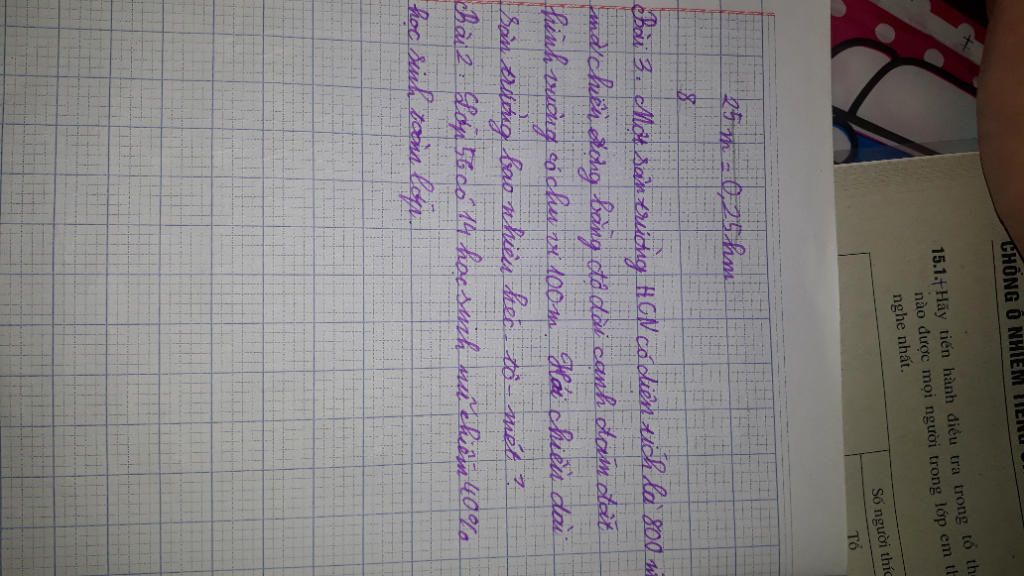 25 m = 0,25 hm
8
Bài 3. Một sân trường HCN có diện tích là 800 m
mà chiều rộng bằng độ dài cạnh đám đất
hình vuông có chu vi 100m. Hỏi chiều dài
sân trường bao nhiêu héc-tô-mét?
Bài 2: Lớp 5B có 14 học sinh nữ chiếm 40%
học sinh toàn lớp.
CHỐNG Ô NHIỄM TIẾNG
15.1. Hãy tiến hành điều tra trong tổ th
nào được mọi người trong lớp em th
nghe nhất.
Số người thíc
Tổ